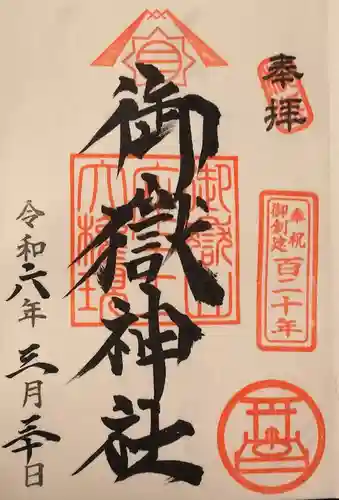 奉拝
奉祝
御創建
百二十年
御嶽神社
令和六年 三月三十日